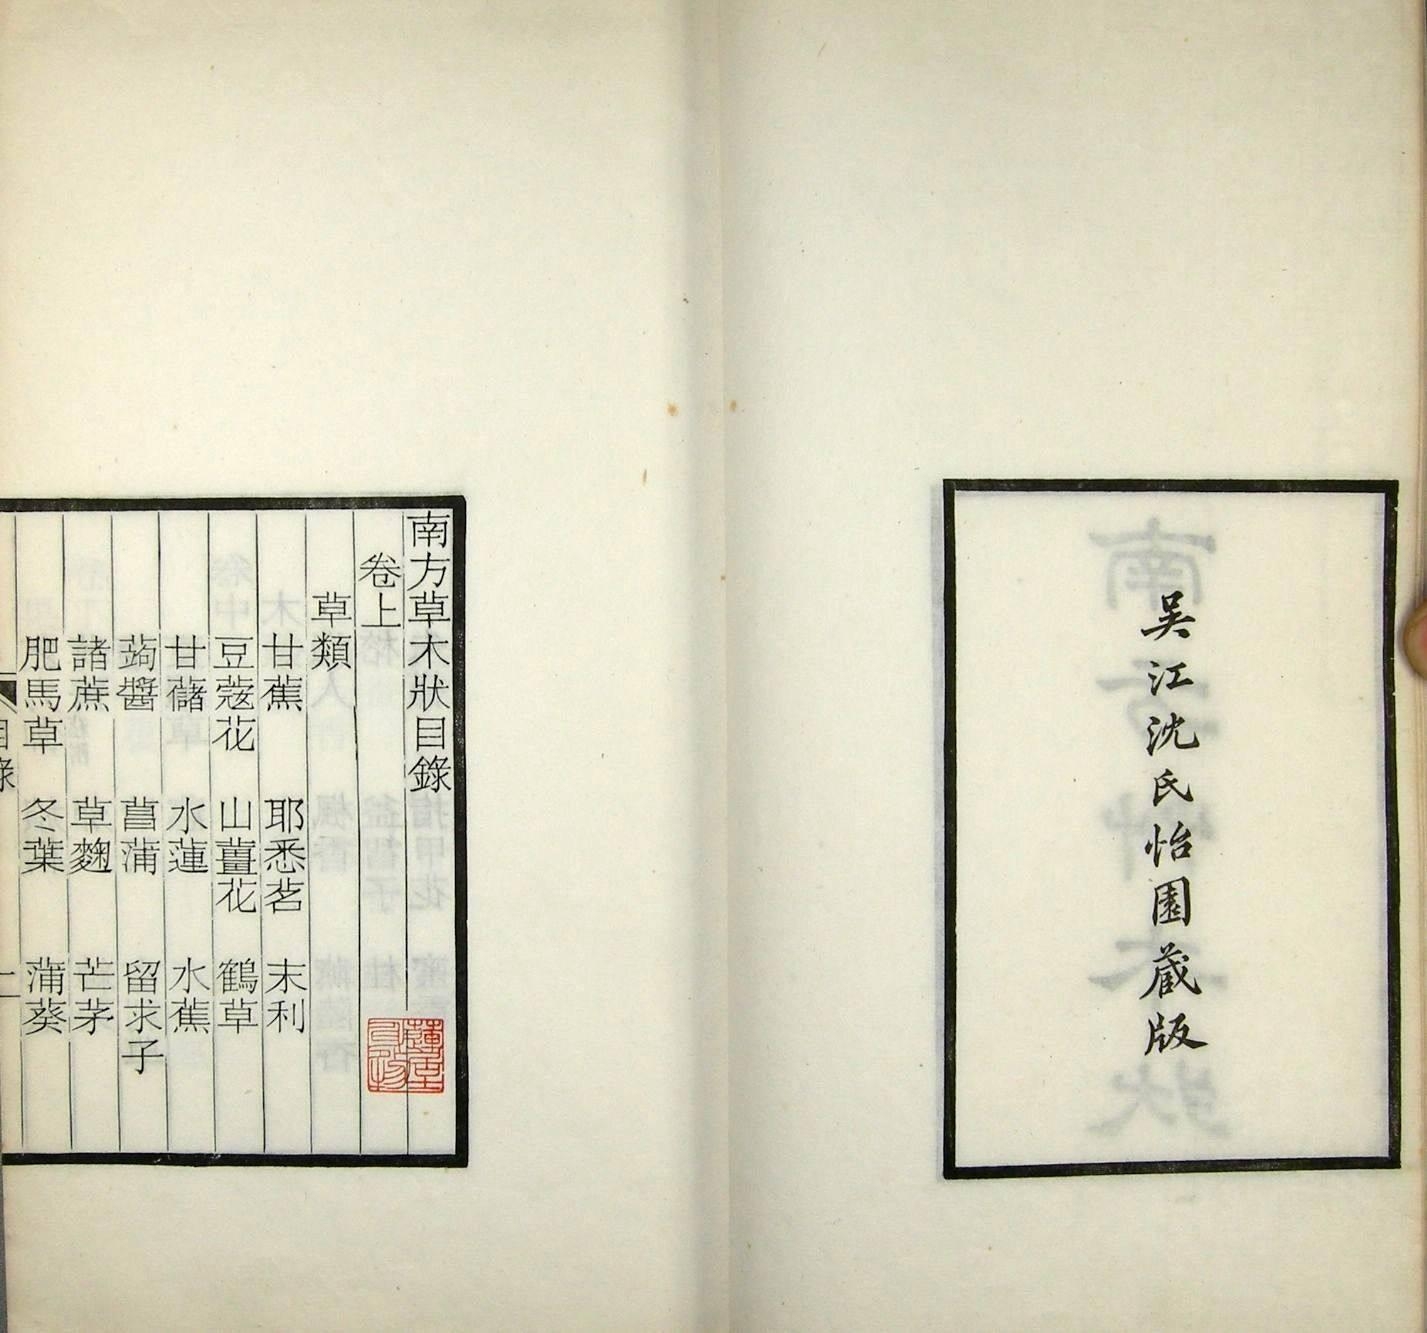 吳江沈氏怡園藏版
南方草木狀目錄
卷上
草類
甘蕉 耶悉茗 末利
豆蔻花 山薑花 鶴草
甘藷 水蓮 水蕉
蒟醬 菖蒲 留求子
諸蔗 草麴 芒茅
肥馬草 冬葉 蒲葵
目錄 一